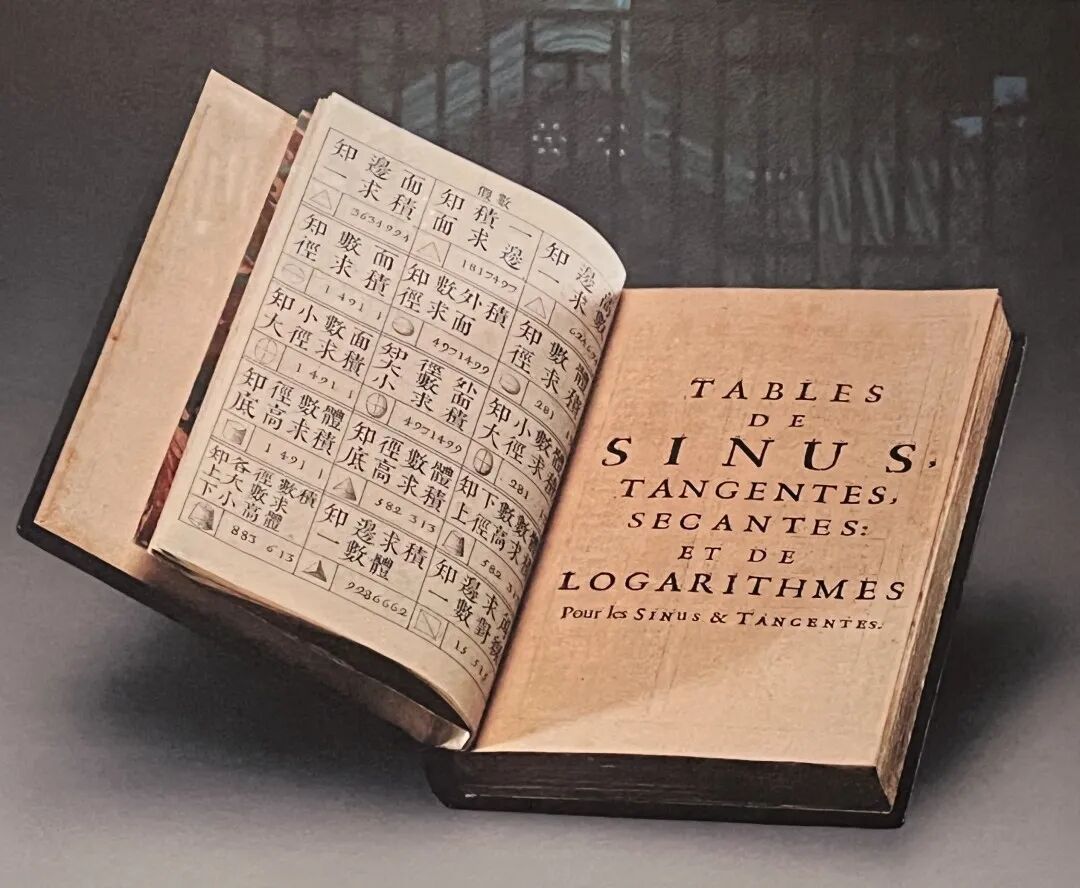 假數
知一邊求面積
3634994
知面積求一邊
1817497
知一邊求高數
知徑數求面積
1 491 1
知徑數求外面積
4971499
知徑數求體積
281
知大小徑數求面積
1 491 1
知大小徑數求外面積
4971499
知大小徑數求體積
281
知底徑高數求體積
1 491 1
知底徑高數求體積
582 313
知上下徑高數求
582
知上下各大小徑高數求體積
883 613
知一邊數求體積
9286662
知一邊數求對
15 515
TABLES
DE
SINUS,
TANGENTES,
SECANTES:
ET DE
LOGARITHMES
Pour les SINUS & TANGENTES.